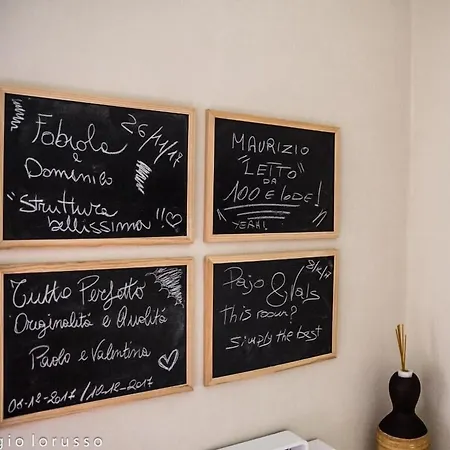 Fabiola
e
Domenico
26/11/17
"Struttura
bellissima"!
MAURIZIO
"LETTO"
DA
100 E LODE!
YEAH!
Tutto Perfetto
Originalità e Qualità
Paolo e Valentina
08-12-2017 / 10-12-2017
Pajo &
This room?
simply the best
gio lorusso